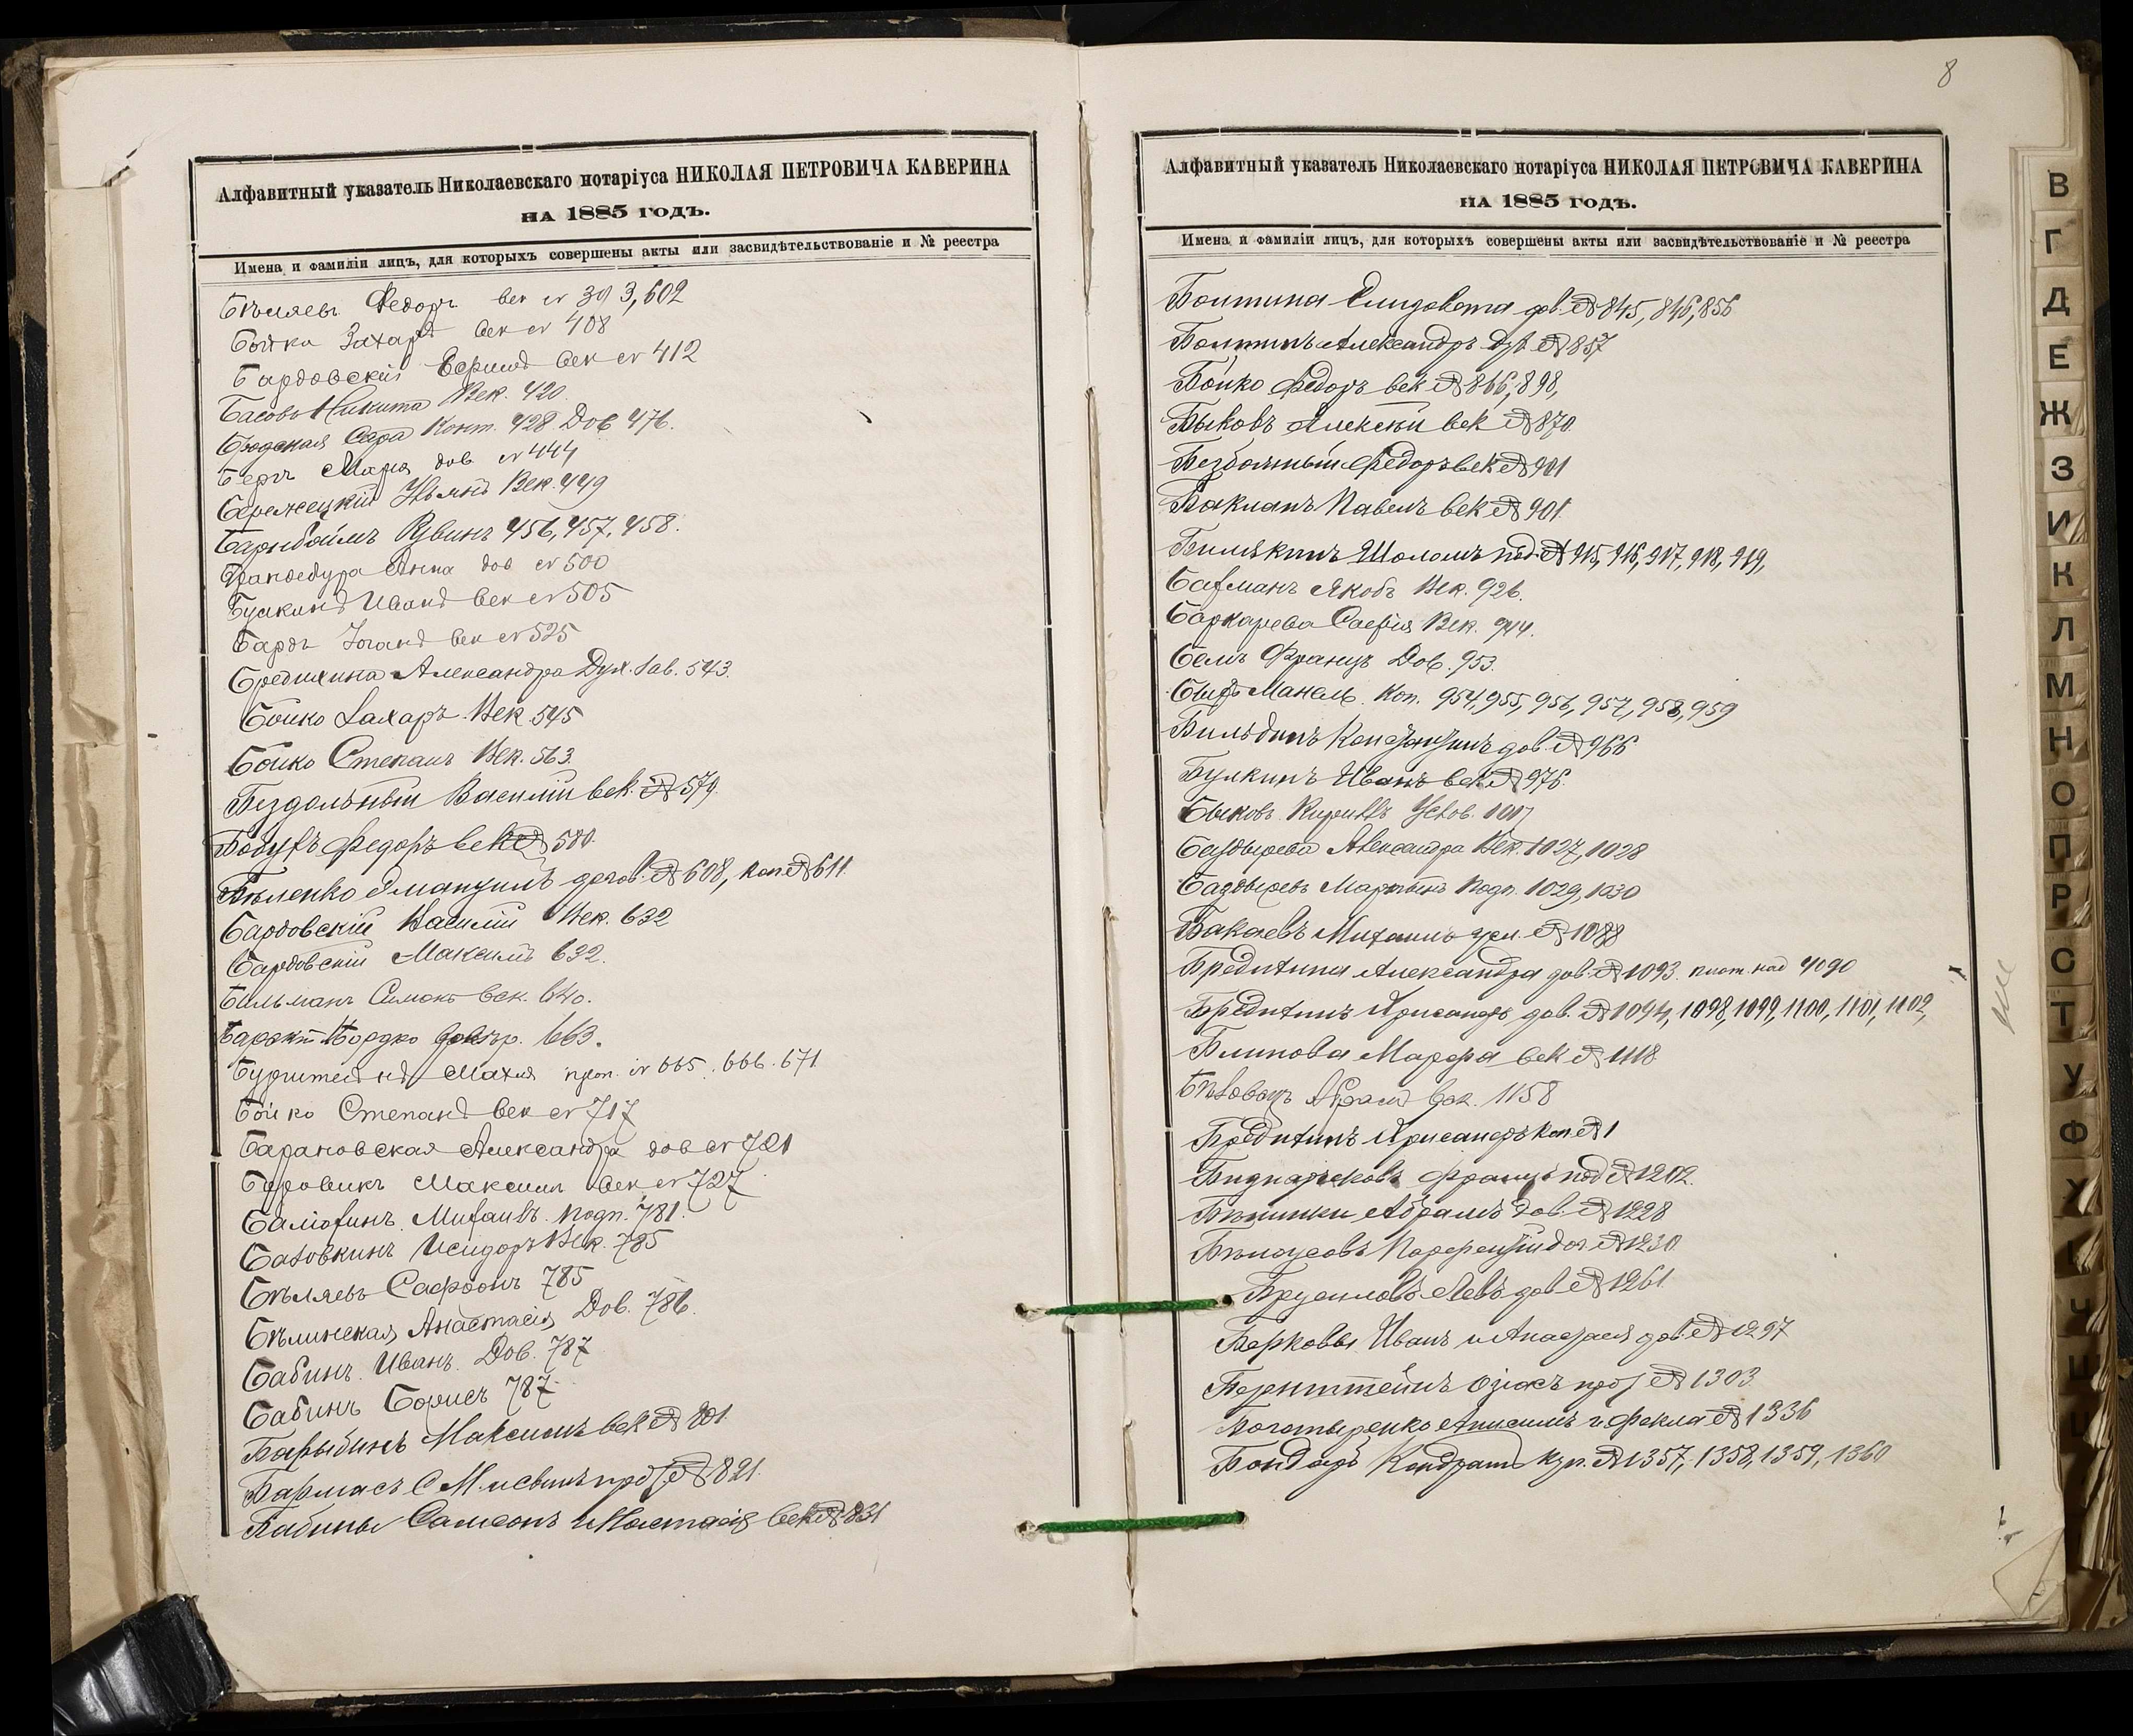 8
Алфавитный указатель Николаевскаго нотаріуса НИКОЛАЯ ПЕТРОВИЧА КАВЕРИНА
НА 1885 ГОДЪ.
Имена и фамиліи лицъ, для которыхъ совершены акты или засвидѣтельствованіе и № реестра
Бѣляевъ Федоръ век № 393, 602
Бойко Захаръ век № 408
Бардовскій век № 412
Басовъ Никита Век. 420.
Бродская Сара Конт. 428 Дов 476.
Бергъ Марія дов № 444
Бережецкій Ульянъ Век. 449
Барнбаймъ Рувинъ 456, 457, 458.
Анна дов № 500
Булкинъ Иванъ век № 505
Бардъ век № 525
Бредихина Александра Дух. зав. 543.
Бойко Захаръ. Век. 545
Бойко Степанъ Век. 563.
Бездольный Василій век. № 579.
Федоръ век № 580.
Бѣленко Эмануилъ догов. № 608, коп. № 611.
Бардовскій Василій Век. 632
Бардовскій Максимъ 632.
Бильманъ Симонъ век. 640.
663.
Махля № 665. 666. 671
Бойко Степанъ век № 717
Барановская Александра дов № 721
Боровикъ Максимъ век № 727
Михаилъ. подп. 781.
Баловкинъ Исидоръ Век. 785
Бѣляевъ Сафронъ 785
Бѣлинская Анастасія Дов. 786.
Бабинъ Иванъ. Дов. 787
Бабинъ Борисъ 787
Барыбинъ Максимъ век № 801
№ 821.
Бабины Самсонъ век № 831
Алфавитный указатель Николаевскаго нотаріуса НИКОЛАЯ ПЕТРОВИЧА КАВЕРИНА
НА 1885 ГОДЪ.
Имена и фамиліи лицъ, для которыхъ совершены акты или засвидѣтельствованіе и № реестра
Болтина Елизовета дов. № 845, 846, 856
Болтинъ Александръ № 857
Бойко Федоръ век № 866, 898,
Быковъ Алексѣй век № 870.
Бездольный Федоръ век № 901
Бакланъ Павелъ век № 901.
Шоломъ под. № 915, 916, 917, 918, 919,
Бахманъ Якобъ Век. 926.
Баркарева Софія Век. 944.
Белъ Францъ Дов. 953.
Манель. Коп. 954, 955, 956, 957, 958, 959
Константинъ дов. № 966
Булкинъ Иванъ век № 976.
Быковъ. Кириллъ Услов. 1007
Баздырева Александра Век. 1027, 1028
Баздыревъ Мартынъ Подп. 1029, 1030
Бакаевъ Михаилъ № 1088
Бредихина Александра дов. № 1093. 1090
Бредихинъ Хрисанфъ дов. № 1094, 1098, 1099, 1100, 1101, 1102,
Блинова Марфа век № 1118
Абрамъ 1158
Бредихинъ Хрисанфъ коп. № 1
Францъ под № 1202.
Абрамъ дов. № 1228
Бѣлоусовъ Парфентій дог. № 1230
Брусиловъ Левъ дов № 1261
Берковы Иванъ и Анастасія дов. № 1297
Беренштейнъ № 1303
Богатыренко Анисимъ и Фекла № 1336
Бондарь Кондратъ куп. № 1357, 1358, 1359, 1360
В
Г
Д
Е
Ж
З
И
К
Л
М
Н
О
П
Р
С
Т
У
Ф
Х
Ч
Ш